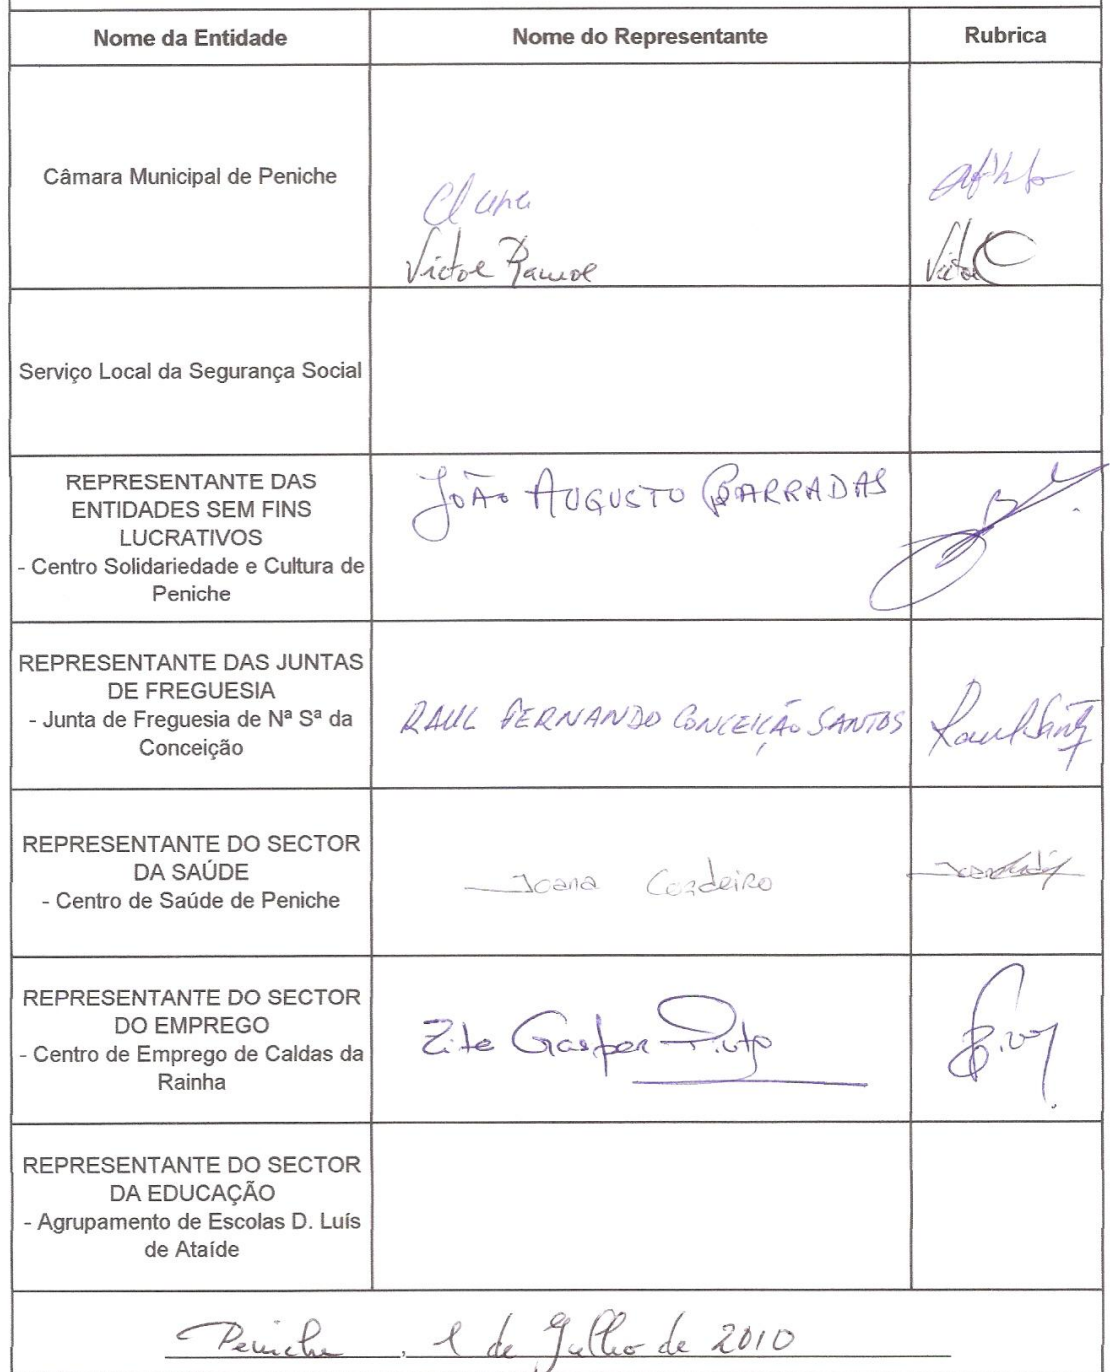 Nome da Entidade Nome do Representante Rubrica
Câmara Municipal de Peniche
Victor Ramos
Victor
Serviço Local da Segurança Social
REPRESENTANTE DAS
ENTIDADES SEM FINS
LUCRATIVOS
- Centro Solidariedade e Cultura de
Peniche
JOÃO AUGUSTO BARRADAS
REPRESENTANTE DAS JUNTAS
DE FREGUESIA
- Junta de Freguesia de Nª Sª da
Conceição
RAUL FERNANDO CONCEIÇÃO SANTOS
Raul Santos
REPRESENTANTE DO SECTOR
DA SAÚDE
- Centro de Saúde de Peniche
Joana Cordeiro
REPRESENTANTE DO SECTOR
DO EMPREGO
- Centro de Emprego de Caldas da
Rainha
Zita Gaspar Pinto
REPRESENTANTE DO SECTOR
DA EDUCAÇÃO
- Agrupamento de Escolas D. Luís
de Ataíde
Peniche, 1 de Julho de 2010